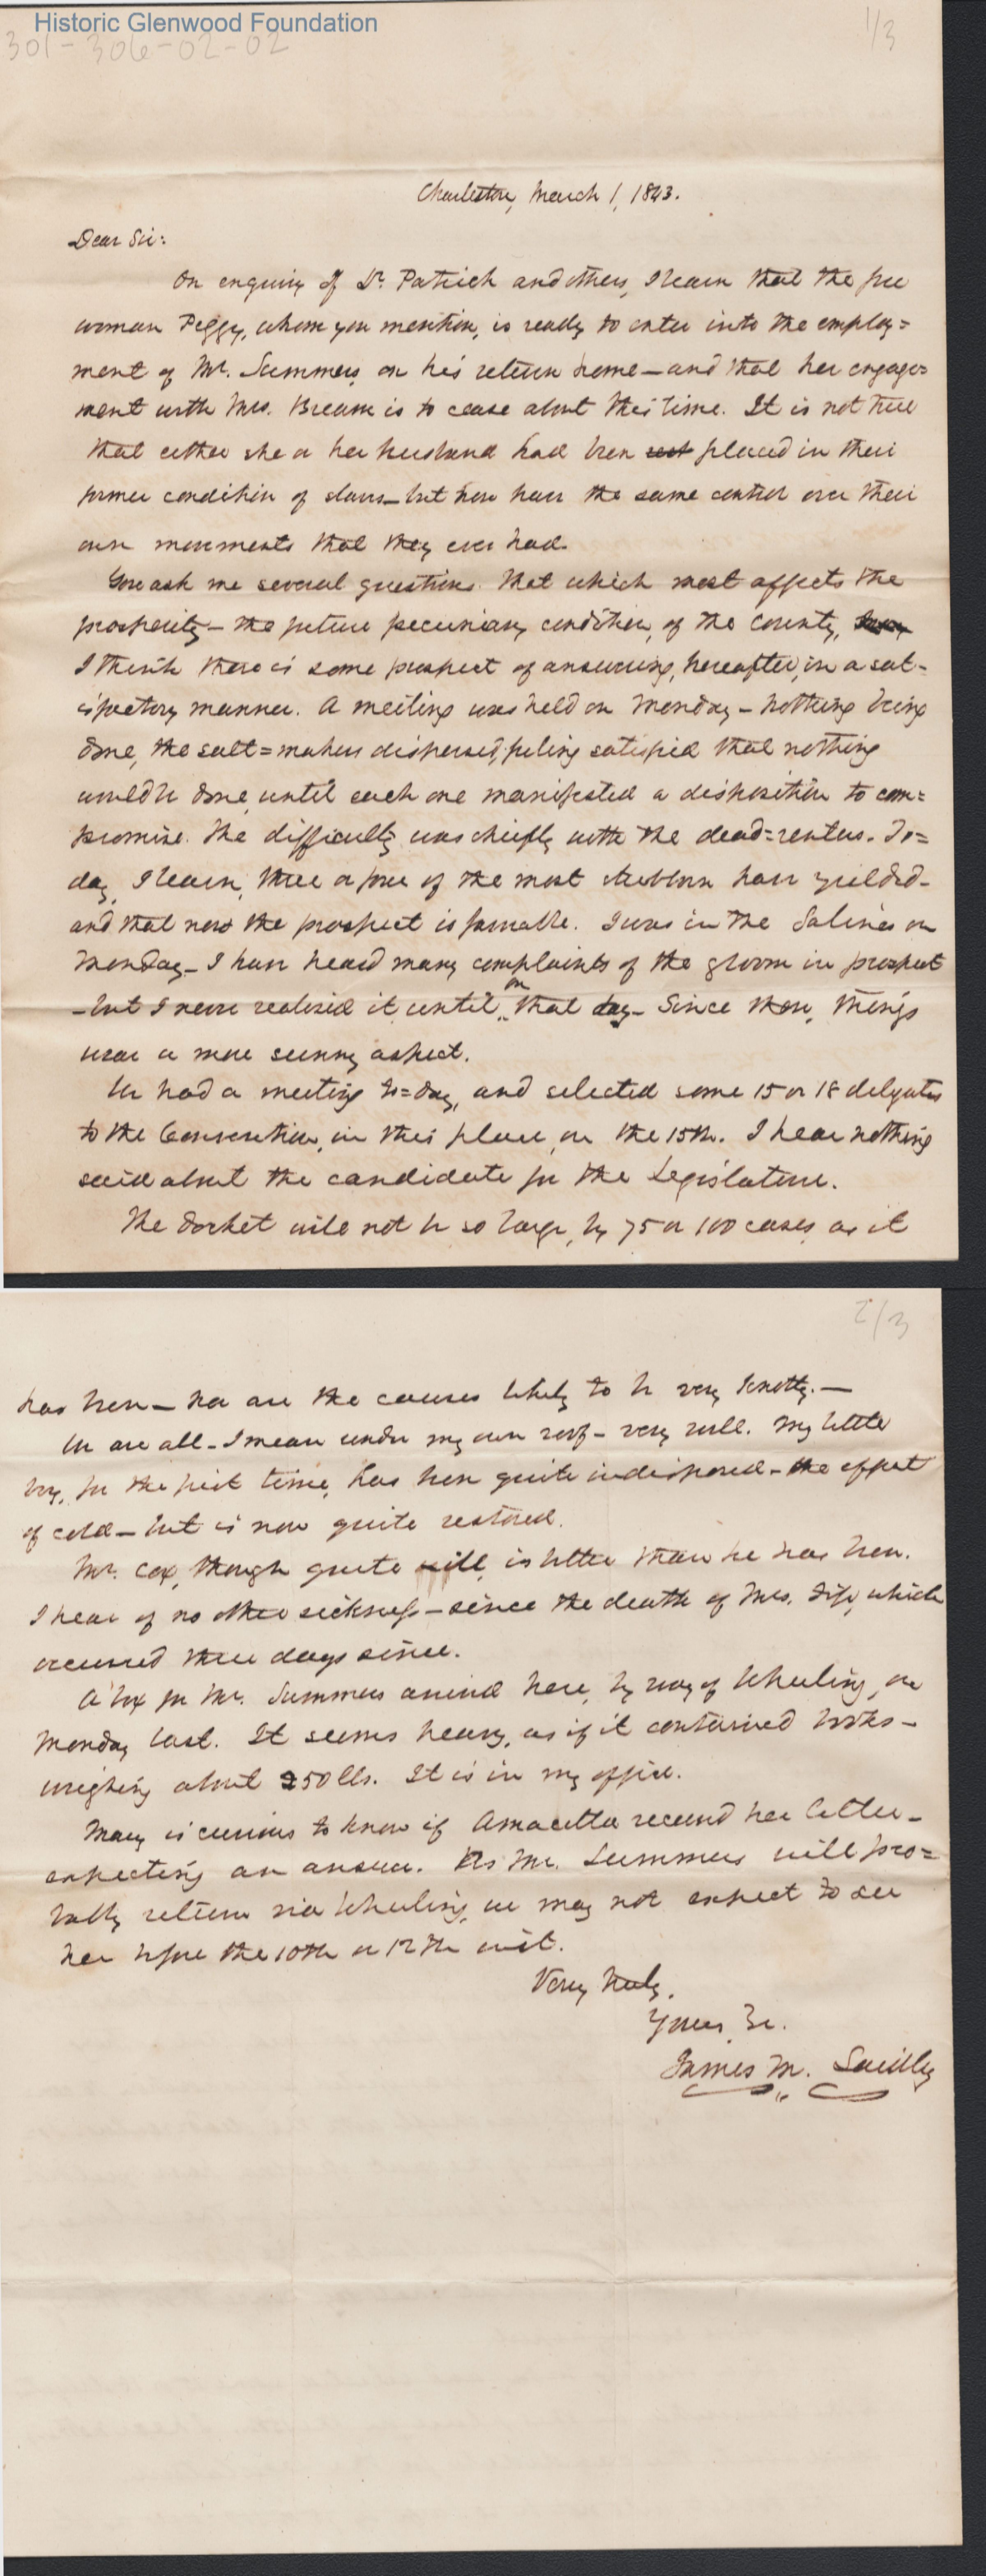 Historic Glenwood Foundation
301-306-02-02
1/3
Charleston, March 1, 1843.
Dear Sir:
On enquiry of Dr. Patrick and others, I learn that the free
woman Peggy, whom you mention, is ready to enter into the employ=
ment of Mr. Summers, on his return home — and that her engage=
ment with Mrs. Bream is to cease about this time. It is not true
that either she or her husband had been placed in their
former condition of slaves — but now have the same control over their
own movements that they ever had.
You ask me several questions. That which most affects the
prosperity — the future pecuniary condition, of the County,
I think there is some prospect of answering, hereafter, in a sat-
isfactory manner. A meeting was held on Monday — nothing being
done, the salt=makers dispersed, feeling satisfied that nothing
would be done, until each one manifested a disposition to com=
promise. The difficulty was chiefly with the dead=renters. To=
day, I learn, three or four of the most stubborn have yielded —
and that now the prospect is favorable. I was in the Salines on
Monday — I have heard many complaints of the gloom in prospect
— but I never realized it, until on that day — Since then, things
wear a more sunny aspect.
We had a meeting to=day, and selected some 15 or 18 delegates
to the Convention, in this place, on the 15th. I hear nothing
said about the candidate for the Legislature.
The docket will not be so large, by 75 or 100 cases, as it
2/3
has been — nor are the causes likely to be very knotty. —
We are all — I mean under my own roof — very well. My little
boy, for the first time, has been quite indisposed — the effect
of cold — but is now quite restored.
Mr. Cox, though quite ill, is better than he has been.
I hear of no other sickness — since the death of Mrs. which
occurred three days since.
A box for Mr. Summers arrived here, by way of Wheeling, on
Monday last. It seems heavy, as if it contained books —
weighing about 250 lbs. It is in my office.
Mary is curious to know if Amacetta received her letter —
expecting an answer. As Mr. Summers will pro=
bably return via Wheeling, we may not expect to see
her before the 10th or 12th inst.
Very truly,
Yours &c.
James M. Laidley